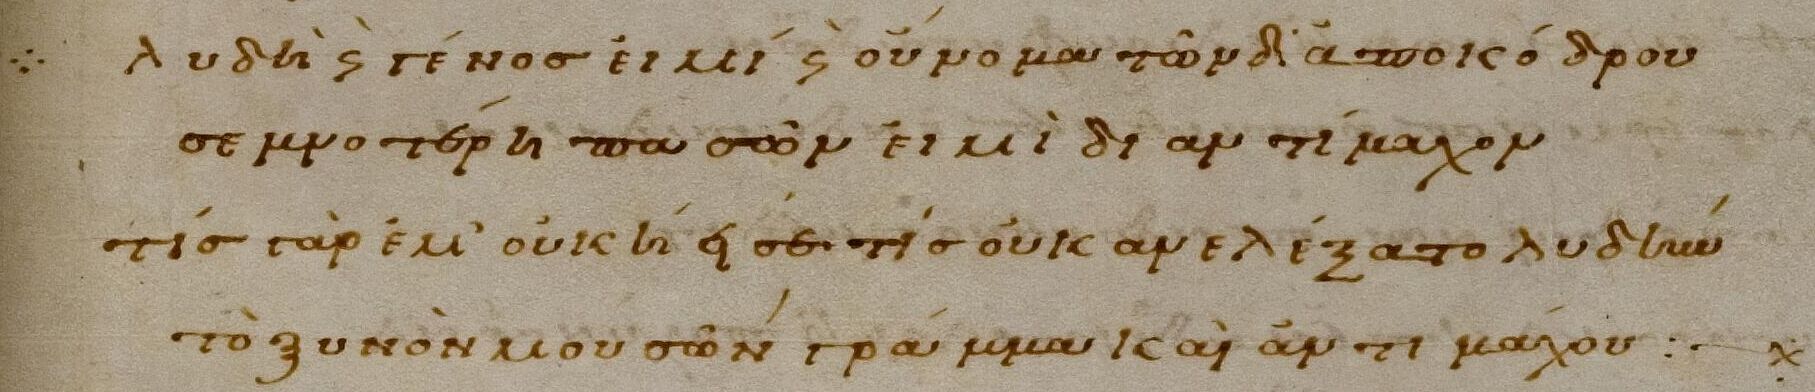 λυδὴ ϛ γένος εἰμί ϛ οὔνομα τῶν δ' ἀπο κόδρου
σεμνοτέρη πασῶν εἰμὶ δι αντίμαχον
τίς γὰρ ἔμ' οὐκ ἤησέ· τίς οὐκ ανελέξατο λυδήν
τὸ ξυνὸν μουσῶν γράμμα καὶ ἀντιμάχου :